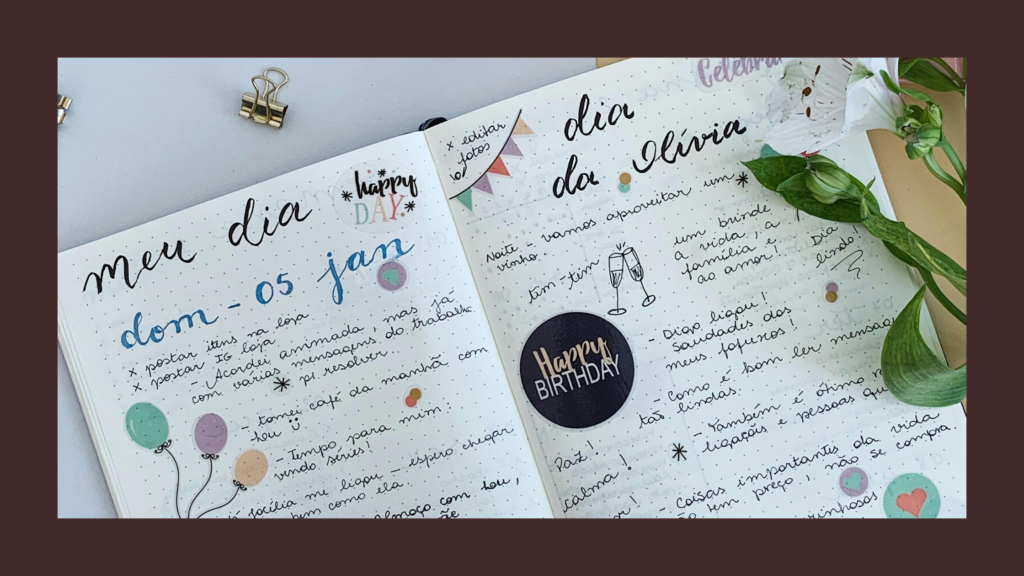 meu dia
happy
DAY.
dom - 05 jan
x postar itens na loja
x postar IG loja
- Acordei animada, mas já
com várias mensagens do trabalho
p/ resolver..
- tomei café da manhã com
Lou
- Tempo para mim!
vendo séries!
me ligou - espero chegar
bem como ela.
Almoço com Lou,
x editar
fotos
Celebra
dia
da Olívia
Noite - vamos aproveitar um
vinho -
tim-tim
um brinde
a vida, a
família e
ao amor!
Dia
lindo!
Happy
BIRTHDAY
- Digo ligou!
Saudades dos
meus fofuxos!
- Como é bom ler mensag
tão lindas.
Paz!
calma!
- Também é ótimo
ligações e pessoas qu
- Coisas importantes da vida
não tem preço, não se compra